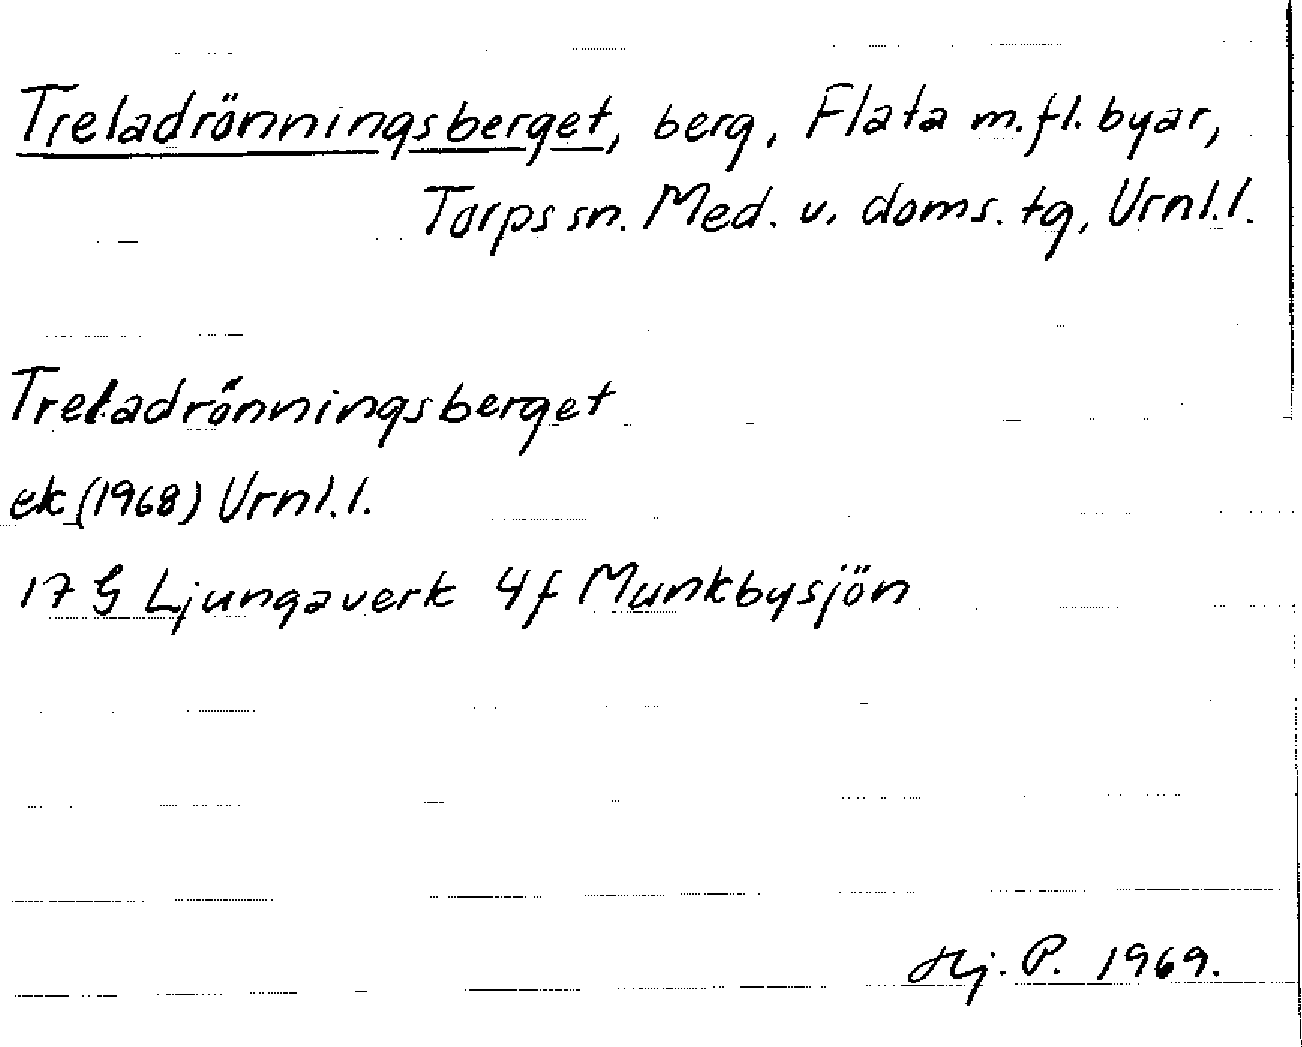 Treladrönningsberget, berg, Flata m.fl. byar,
Torps sn. Med. v. doms. tg, Vrnl.l.
Treladrönningsberget
ek (1968) Vrnl.l.
17 G Ljungaverk 4f Munkbysjön
Hj. P. 1969.